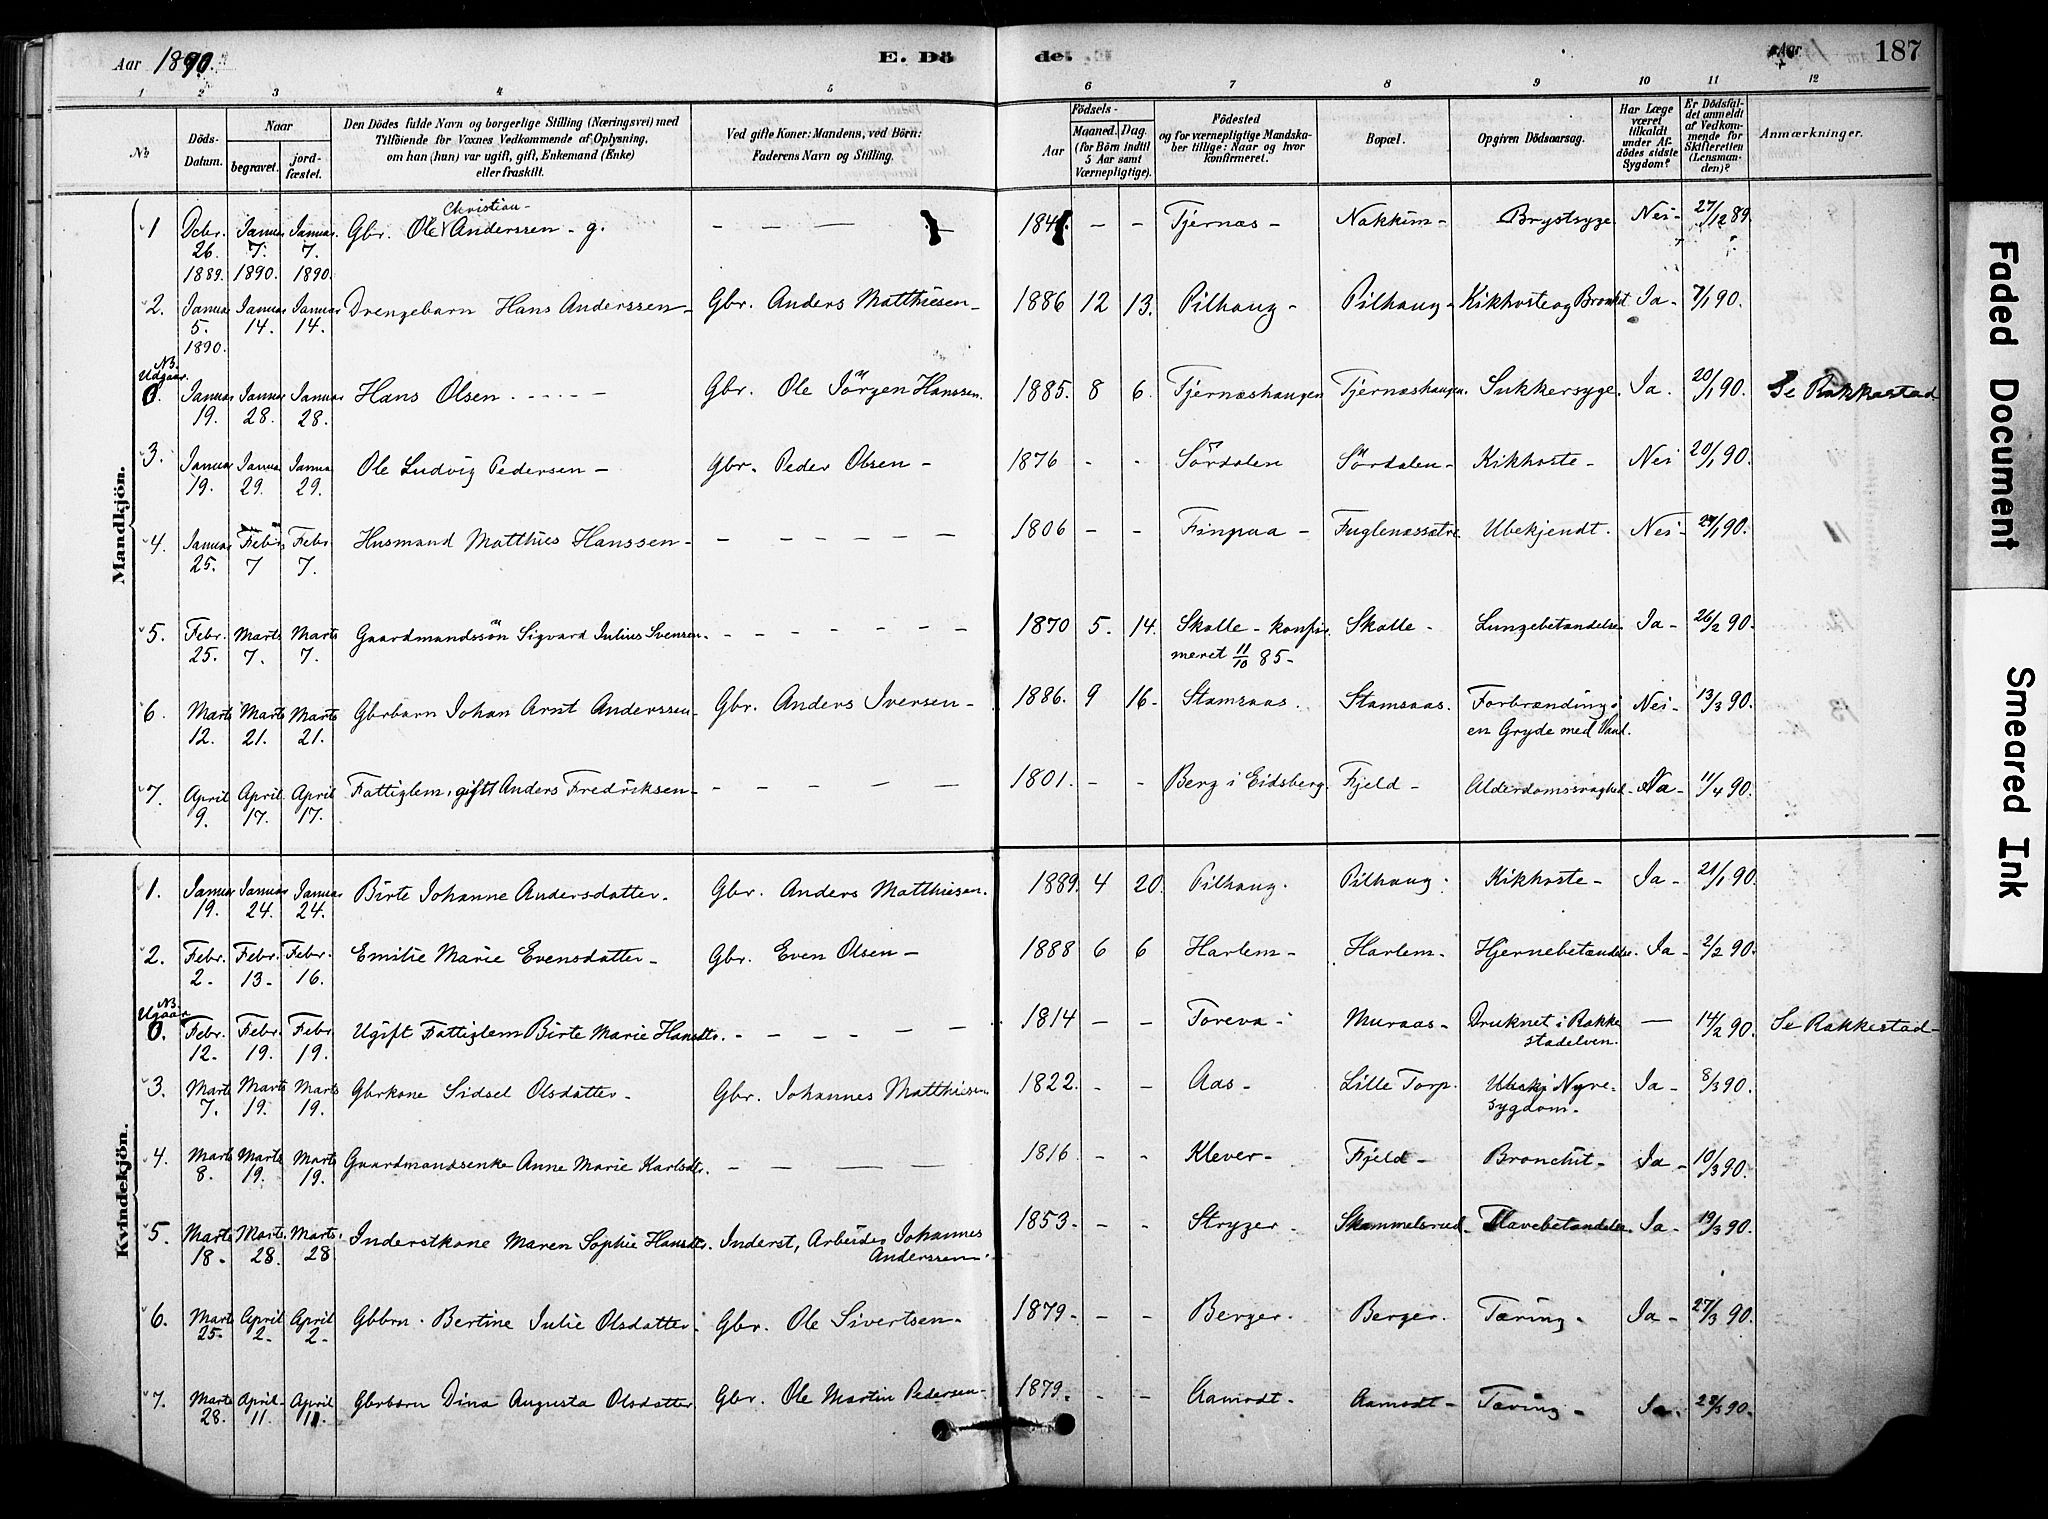 Aar 1890. E. Döde. Aar 187
1 2 3 4 5 6 7 8 9 10 11 12
No Döds-Datum. Naar begravet. jord-fæstet. Den Dödes fulde Navn og borgerlige Stilling (Næringsvei) med Tilföiende for Voxnes Vedkommende af Oplysning, om han (hun) var ugift, gift, Enkemand (Enke) eller fraskilt. Ved gifte Koner: Mandens, ved Börn: Faderens Navn og Stilling. Födsels- Aar Maaned. Dag. (for Börn indtil 5 Aar samt Værnepligtige). Födested og for værnepligtige Mandskaber tillige: Naar og hvor konfirmeret. Bopæl. Opgiven Dödsaarsag. Har Læge været tilkaldt under Afdödes sidste Sygdom? Er Dödsfaldet anmeldt af Vedkommende for Skifteretten (Lensmanden)? Anmærkninger.
Mandkjön.
1 Dcbr. 26. 1889. Januar 7. 1890. Januar 7. 1890. Gbr. Ole Christian Anderssen - g. - - - - 184 - - Tjernæs - Nakkim - Brystsyge Nei - 27/12 89.
2. Januar 5. 1890. Januar 14. Januar 14. Drengebarn Hans Anderssen - Gbr. Anders Matthiesen - 1886 12 13. Pilhaug - Pilhaug - Kikhoste og Bronkit Ja - 7/1 90.
NB. Udgaar. 0. Januar 19. Januar 28. Januar 28. Hans Olsen - - - - Gbr. Ole Jörgen Hanssen. 1885. 8 6. Tjernæshaugen Tjernæshaugen. Sukkersyge. Ja. 20/1 90. Se Rakkestad
3. Januar 19. Januar 29. Januar 29. Ole Ludvig Pedersen - Gbr. Peder Olsen - 1876 - - Sördalen Sördalen - Kikhoste - Nei 20/1 90.
4. Januar 25. Febr 7 Febr 7. Husmand Matthies Hanssen - - - - - - - 1806 - - Finpaa - Fuglenæssætre. Ubekjendt. Nei - /1 90.
5. Febr. 25. Marts 7. Marts 7. Gaardmandssön Sigvard Julius Svensen. - - - - - - 1870 5. 14. Skolle - konfirmeret 11/10 85 - Skolle - Lungebetændelse Ja - 26/2 90.
6. Marts 12. Marts 21. Marts 21. Gbrbarn Johan Arnt Anderssen - Gbr. Anders Iversen - 1886. 9 16 - Stamsaas. Stamsaas. Forbrænding i en Gryde med Vand. Nei - 13/3 90.
7. April 9. April 17. April 17. Fattiglem, gift Anders Fredriksen - - - - - - 1801. - - Berg i Eidsberg. Fjeld - Alderdomssvaghed - Na - 11/4 90.
Kvindekjön.
1. Januar 19. Januar 24. Januar 24. Birte Johanne Andersdatter. Gbr. Anders Matthiesen. 1889. 4 20. Pilhaug. Pilhaug. Kikhoste - Ja - 21/1 90.
2. Febr. 2. Febr. 13. Febr. 16. Emilie Marie Evensdatter - Gbr. Even Olsen - 1888 6 6 Harlem - Harlem - Hjernebetændelse. Ja - 2/2 90.
NB. Ugaar 0. Febr. 12. Febr. 19. Febr. 19. Ugift Fattiglem Birte Marie Hansdtr. - - - - - 1814 - - Toreva - Muraas - Druknet i Rakkestadelven. - 14/2 90. Se Rakkestad -
3. Marts 7. Marts 19. Marts 19. Gbrkone Sidsel Olsdatter - Gbr. Johannes Matthiesen 1822. - - Aas - Lille Torp. Ubekj Nyresygdom. Ja - 8/3 90.
4. Marts 8. Marts 19. Marts 19. Gaardmandsenke Anne Marie Karlsdtr. - - - - 1816 - - Klever - Fjeld - Bronchit - Ja - 10/3 90.
5. Marts 18. Marts. 28. Marts. 28 Inderstkone Maren Sophie Hansdtr. Inderst, Arbeider Johannes Anderssen. 1853. - - Stryger - Skammelsrud. Mavebetændelse. Ja - 19/3 90.
6. Marts 25. April 2. April 2. Gbbrn. Bertine Julie Olsdatter - Gbr. Ole Sivertsen - 1879 - - - Berger. Berger. Tæring - Ja - 27/3 90.
7. Marts 28. April 11. April 11. Gbrbarn Dina Augusta Olsdatter Gbr. Ole Martin Pedersen - 1879. - - Aamodt - Aamodt - Tæring - Ja. 28/3 90.
Faded Document
Smeared Ink